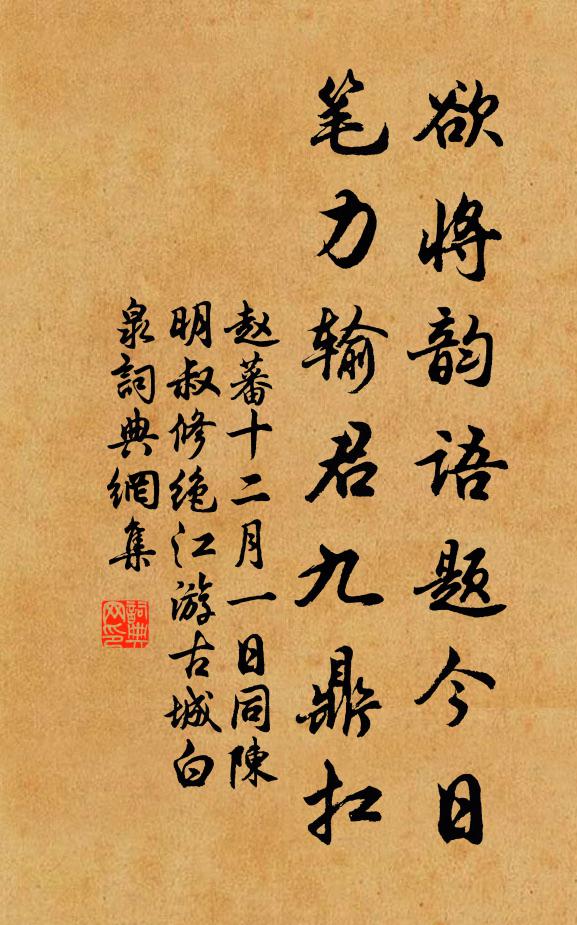 欲将韵语题今日
笔力输君九鼎扛
赵蕃十二月一日同陳
明叔修绝江游古城白
泉詞典網集
詞典网印